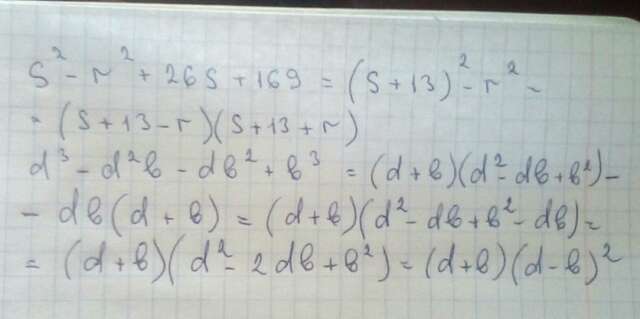 S² - r² + 26S + 169 = (S + 13)² - r² =
= (S + 13 - r)(S + 13 + r)
d³ - d²b - db² + b³ = (d + b)(d² - db + b²) -
- db(d + b) = (d + b)(d² - db + b² - db) =
= (d + b)(d² - 2db + b²) = (d + b)(d - b)²